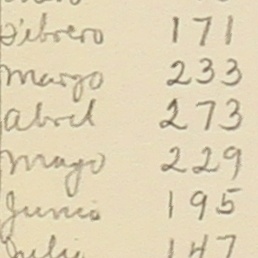 Febrero 171
Marzo 233
Abril 273
Mayo 229
Junio 195
Julio 147